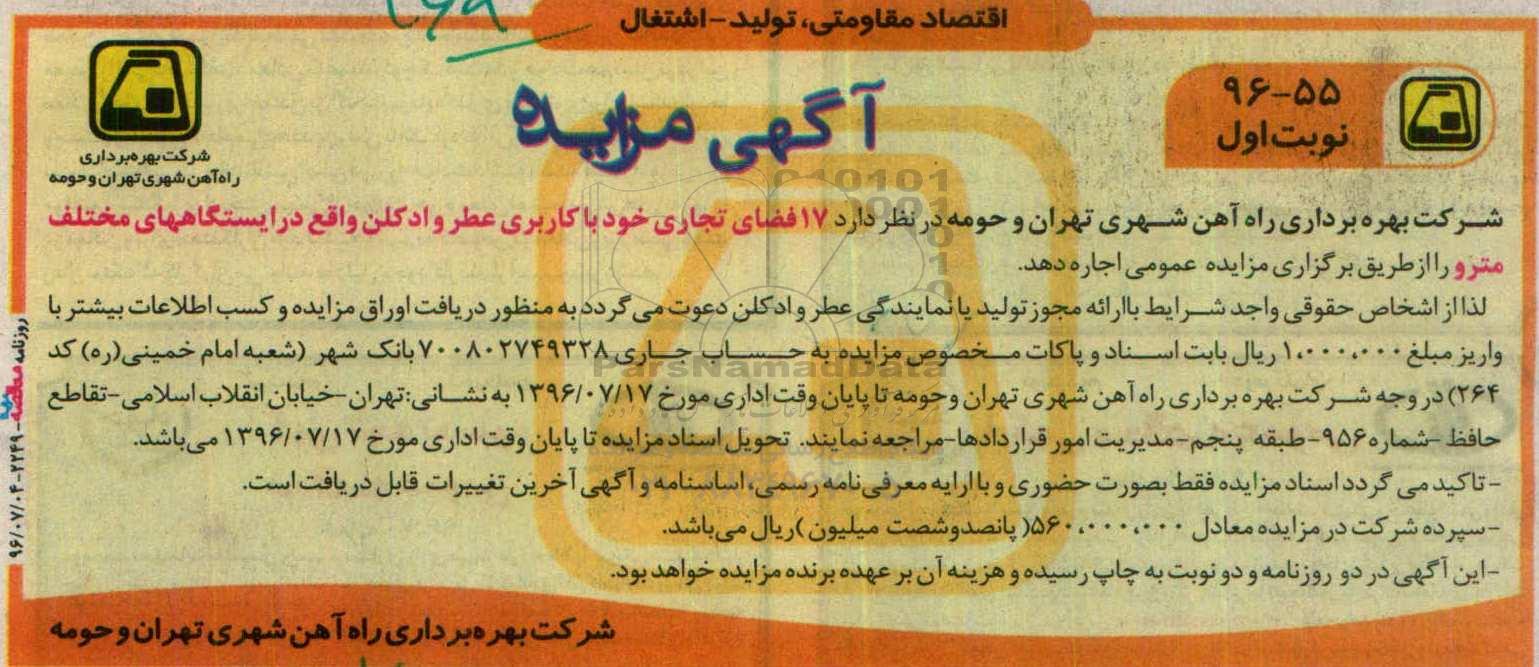 اقتصاد مقاومتی، تولید-اشتغال
۹۶-۵۵
نوبت اول
آگهی مزایده
شرکت بهره‌برداری
راه‌آهن شهری تهران و حومه
شرکت بهره برداری راه آهن شهری تهران و حومه در نظر دارد ۱۷ فضای تجاری خود با کاربری عطر و ادکلن واقع در ایستگاههای مختلف
مترو را از طریق برگزاری مزایده عمومی اجاره دهد.
لذا از اشخاص حقوقی واجد شرایط باارائه مجوز تولید یا نمایندگی عطر و ادکلن دعوت می گردد به منظور دریافت اوراق مزایده و کسب اطلاعات بیشتر با
واریز مبلغ ۱،۰۰۰،۰۰۰ ریال بابت اسناد و پاکات مخصوص مزایده به حساب جاری ۷۰۰۸۰۲۷۴۹۳۲۸ بانک شهر (شعبه امام خمینی(ره) کد
۲۶۴) در وجه شرکت بهره برداری راه آهن شهری تهران وحومه تا پایان وقت اداری مورخ ۱۳۹۶/۰۷/۱۷ به نشانی: تهران-خیابان انقلاب اسلامی-تقاطع
حافظ-شماره ۹۵۶-طبقه پنجم-مدیریت امور قراردادها-مراجعه نمایند. تحویل اسناد مزایده تا پایان وقت اداری مورخ ۱۳۹۶/۰۷/۱۷ می‌باشد.
-تاکید می گردد اسناد مزایده فقط بصورت حضوری و با ارایه معرفی نامه رسمی، اساسنامه و آگهی آخرین تغییرات قابل دریافت است.
-سپرده شرکت در مزایده معادل ۵۶۰،۰۰۰،۰۰۰( پانصدوشصت میلیون )ریال می‌باشد.
-این آگهی در دو روزنامه و دو نوبت به چاپ رسیده و هزینه آن بر عهده برنده مزایده خواهد بود.
شرکت بهره‌برداری راه آهن شهری تهران و حومه
روزنامه مناقصه مزایده-۲۲۴۹-۹۶/۰۷/۰۴
ParsNamadData